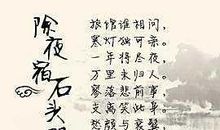 除夜宿
石头
旅馆谁相问，
寒灯独可亲。
一年将尽夜，
万里未归人。
寥落悲前事，
支离笑此身。
愁颜与衰鬓，